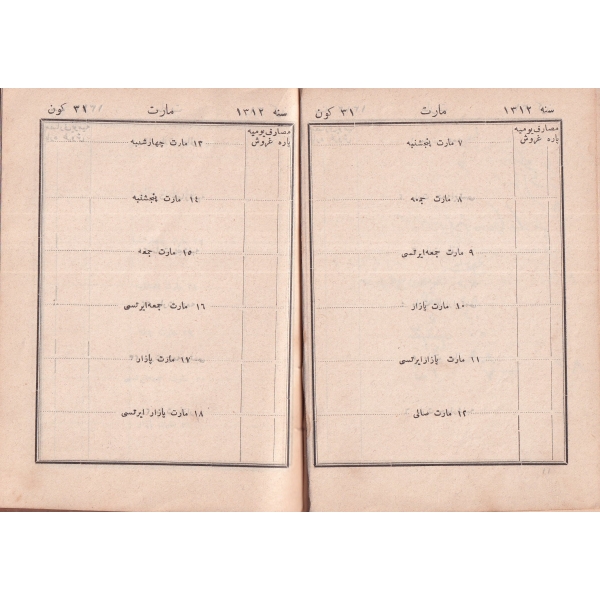 سنه ١٣١٢ مارت ٣١ كون
مصارف يوميه
پاره غروش
٧ مارت پنجشنبه
٨ مارت جمعه
٩ مارت جمعه ايرتسى
١٠ مارت پازار
١١ مارت پازار ايرتسى
١٢ مارت صالى
سنه ١٣١٢ مارت ٣١ كون
مصارف يوميه
پاره غروش
١٣ مارت چهارشنبه
١٤ مارت پنجشنبه
١٥ مارت جمعه
١٦ مارت جمعه ايرتسى
١٧ مارت پازار
١٨ مارت پازار ايرتسى